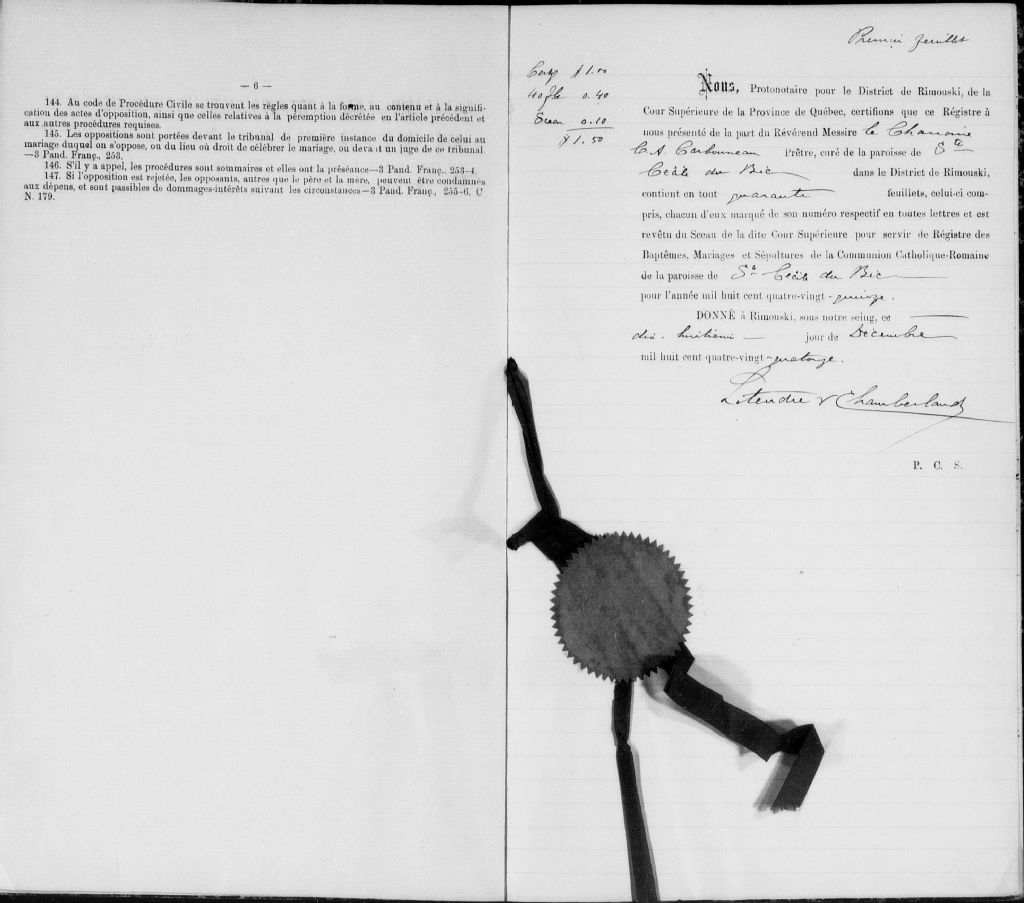 — 6 —
144. Au code de Procédure Civile se trouvent les règles quant à la forme, au contenu et à la signifi-
cation des actes d'opposition, ainsi que celles relatives à la péremption décrétée en l'article précédent et
aux autres procédures requises.
145. Les oppositions sont portées devant le tribunal de première instance du domicile de celui au
mariage duquel on s'oppose, ou du lieu où droit de célébrer le mariage, ou devant un juge de ce tribunal
—3 Pand. Franç., 253.
146. S'il y a appel, les procédures sont sommaires et elles ont la préséance—3 Pand. Franç.. 253-4.
147. Si l'opposition est rejetée, les opposants, autres que le père et la mere, peuvent être condamnés
aux dépens, et sont passibles de dommages-intérêts suivant les circonstances—3 Pand. Franç., 255-6. C
N. 179.
Premier feuillet
Certf $1.00
40 fts 0.40
Sceau 0.10
$1.50
Nous, Protonotaire pour le District de Rimouski, de la
Cour Supérieure de la Province de Québec, certifions que ce Régistre à
nous présenté de la part du Révérend Messire le Chanoine
C. A. Carbonneau Prêtre, curé de la paroisse de Ste
Cécile du Bic dans le District de Rimouski,
contient en tout quarante feuillets, celui-ci com-
pris, chacun d'eux marqué de son numéro respectif en toutes lettres et est
revêtu du Sceau de la dite Cour Supérieure pour servir de Régistre des
Baptêmes, Mariages et Sépultures de la Communion Catholique-Romaine
de la paroisse de Ste Cécile du Bic
pour l'année mil huit cent quatre-vingt-quinze.
DONNÉ à Rimouski, sous notre seing, ce
dix-huitième jour de Décembre
mil huit cent quatre-vingt-quatorze.
Letendre & Chamberland
P. C. S.